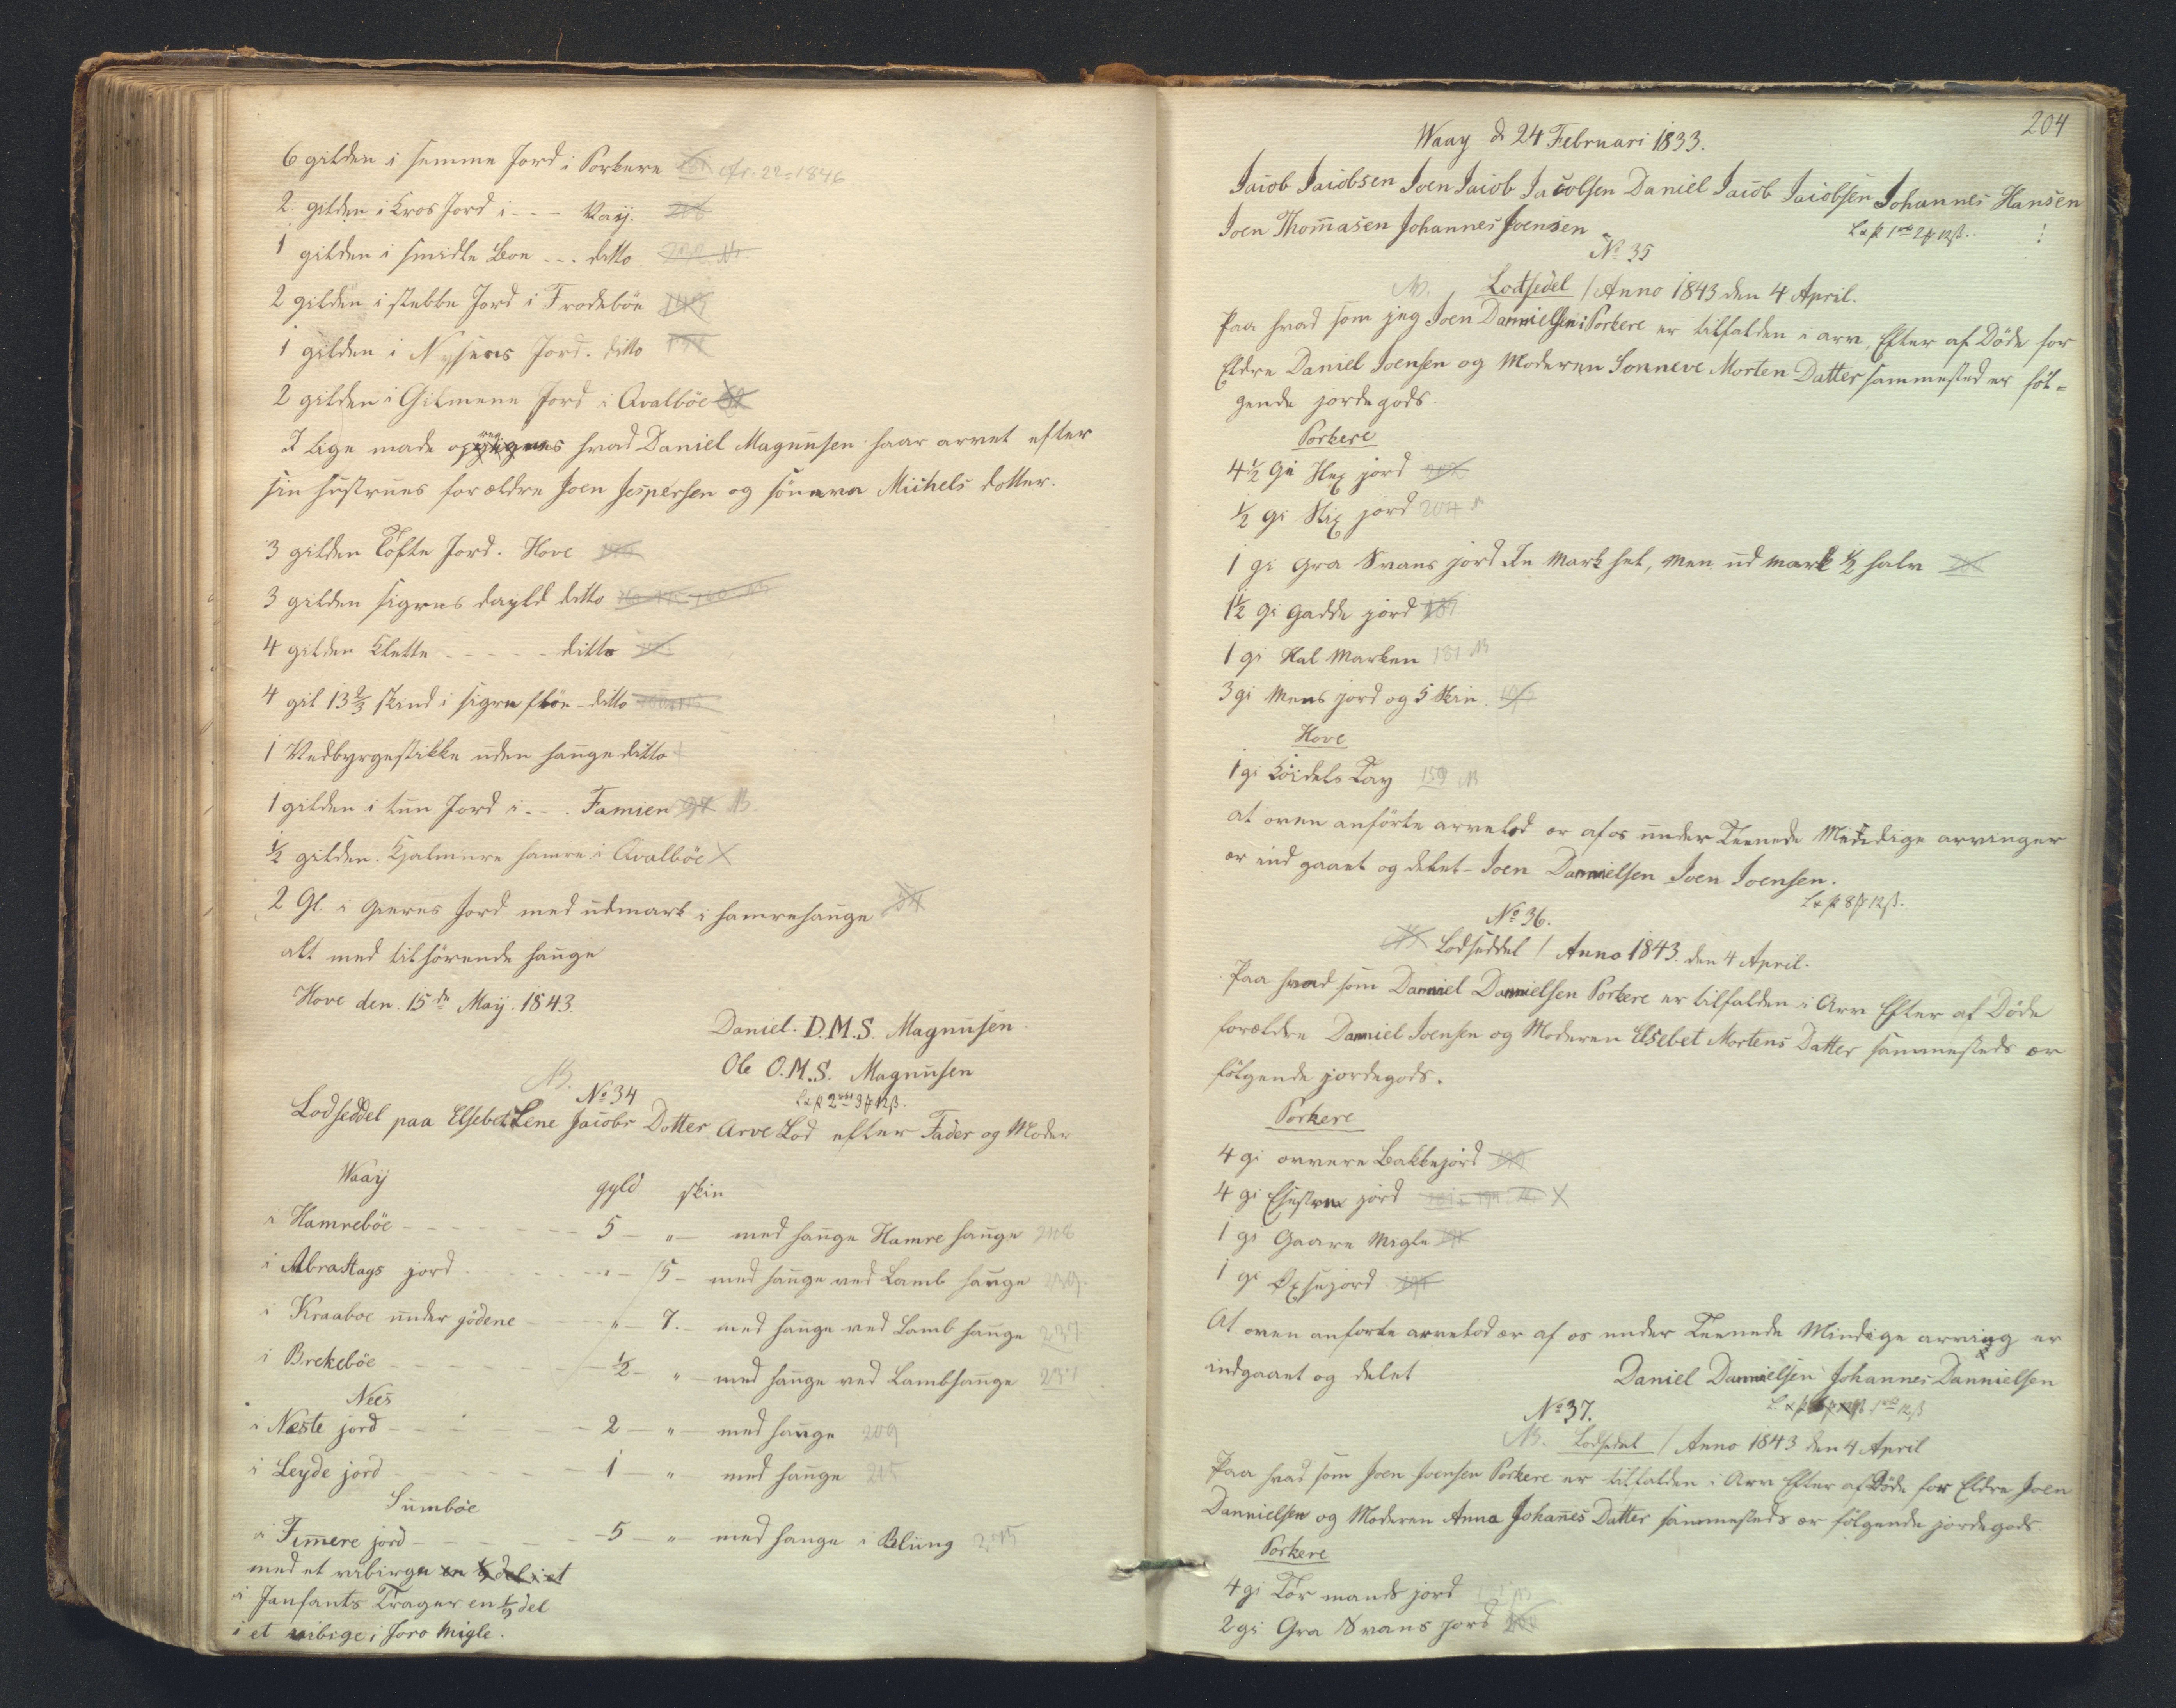 6 gilden i semme Jord i Porkere 161 cfr. 22=1846
2 gilden i Kros Jord i - - - Vaÿ.
1 gilden i smidte Boe - - . ditto
2 gilden i stebbe Jord i Frodeböe
1 gilden i Nysens Jord. ditto
2 gilden i Gilmene Jord i Qvalböe
I Lige made hvad Daniel Magnusen haar arvet efter
sin hustrues forældre Joen Jespersen og sönneva Michels dotter.
3 gilden Tofte Jord. Hove
3 gilden signes dayld ditto
4 gilden Klette - - - - - ditto
4 gil 13⅔ skind i signe flöe - ditto
1 Vedbyrgestikke uden hauge ditto
1 gilden i tun Jord i - - . Famien NB.
½ gilden. Kjalmere hamre i Qvalböe
2 Gl. i Gieres Jord med udmark i hamrehauge
alt med tilhörende hauge
Hove den. 15de Maÿ. 1843.
Daniel. D.M.S. Magnusen.
Ole O.M.S. Magnusen
NB. No 34
Lodseddel paa Elsebet Lene Jacobs Dotter Arve Lod efter Fader og Moder
Waaÿ gyld skin
i Hamreböe - - - - - 5 - " - med hauge Hamre hauge 208
i Abrattags jord - - - " - 15 - med hauge ved Lamb hauge 239.
i Kraaboe under gödene - - " - 7. - med hauge ved Lamb hauge 237
i Brekeböe - - - - ½ - " - med hauge ved Lambhauge 237
Nees
i Næste jord - - - - - 2 - " - med hauge 209
i Leyde jord - - - - 1 - " - med hauge 215
Sumböe
i Timmere jord - - - - 5 - " - med hauge i Bliing 245
med et vibirge en ⅓ del i et
i Jansants Trager en ⅓ del
i et vibige i Joro Migle.
204
Waay d 24 Februari 1833.
Jaiob Jaiobsen Joen Jaiob Jacobsen Daniel Jaiob Jaiobsen Johannes Hansen
Joen Thommasen Johannes Joensen
No 35
NB. Lodsedel / Anno 1843 den 4 April.
Paa hvad som jeg Joen Dannielsen i Porkere er tilfalden i arv, Efter af Döde for
Eldre Daniel Joensen og Moderen Sonneve Morten Datter sammested er föl=
gende jordegods.
Porkere
4½ Gi Hex jord
½ gi Kix jord 204
1 gi gra Svans jord In Mark het, Men ud mark ½ halv
1½ gi gadde jord
1 gi Kal Marken 181 NB
3 gi Mens jord og 5 Skin
Hove
1 gi Köidels Tay 159 NB
at oven anförte arvelod er af os under Teenede Meindige arvinger
er ind gaaet og delet - Joen Dannielsen Joen Joensen.
No 36.
NB Lodseddel / Anno 1843. den 4 April.
Paa hvad som Daniel Dannielsen Porkere er tilfalden i Arv Efter af Döde
forældre Daniel Joensen og Moderen Elsebet Mortens Datter sammesteds er
fölgende jordegods.
Porkere
4 gi ovvere Bakkejord
4 gi Ehustrue jord
1 gi Gaare Migle
1 gi Oxhujord
At oven anforte arvelod er af os under Teenede Mindige arving er
indgaaet og delet Daniel Dannielsen Johannes Dannielsen
No 37.
NB. Lodsedel / Anno 1843 den 4 April
Paa hvad som Joen Joensen Porkere er tilfalden i Arv Efter af Döde for Eldre Joen
Dannielsen og Moderen Anna Johannes Datter sammesteds er fölgende jordegods.
Porkere
4 gi Tör mands jord
2 gi Gra Svans jord